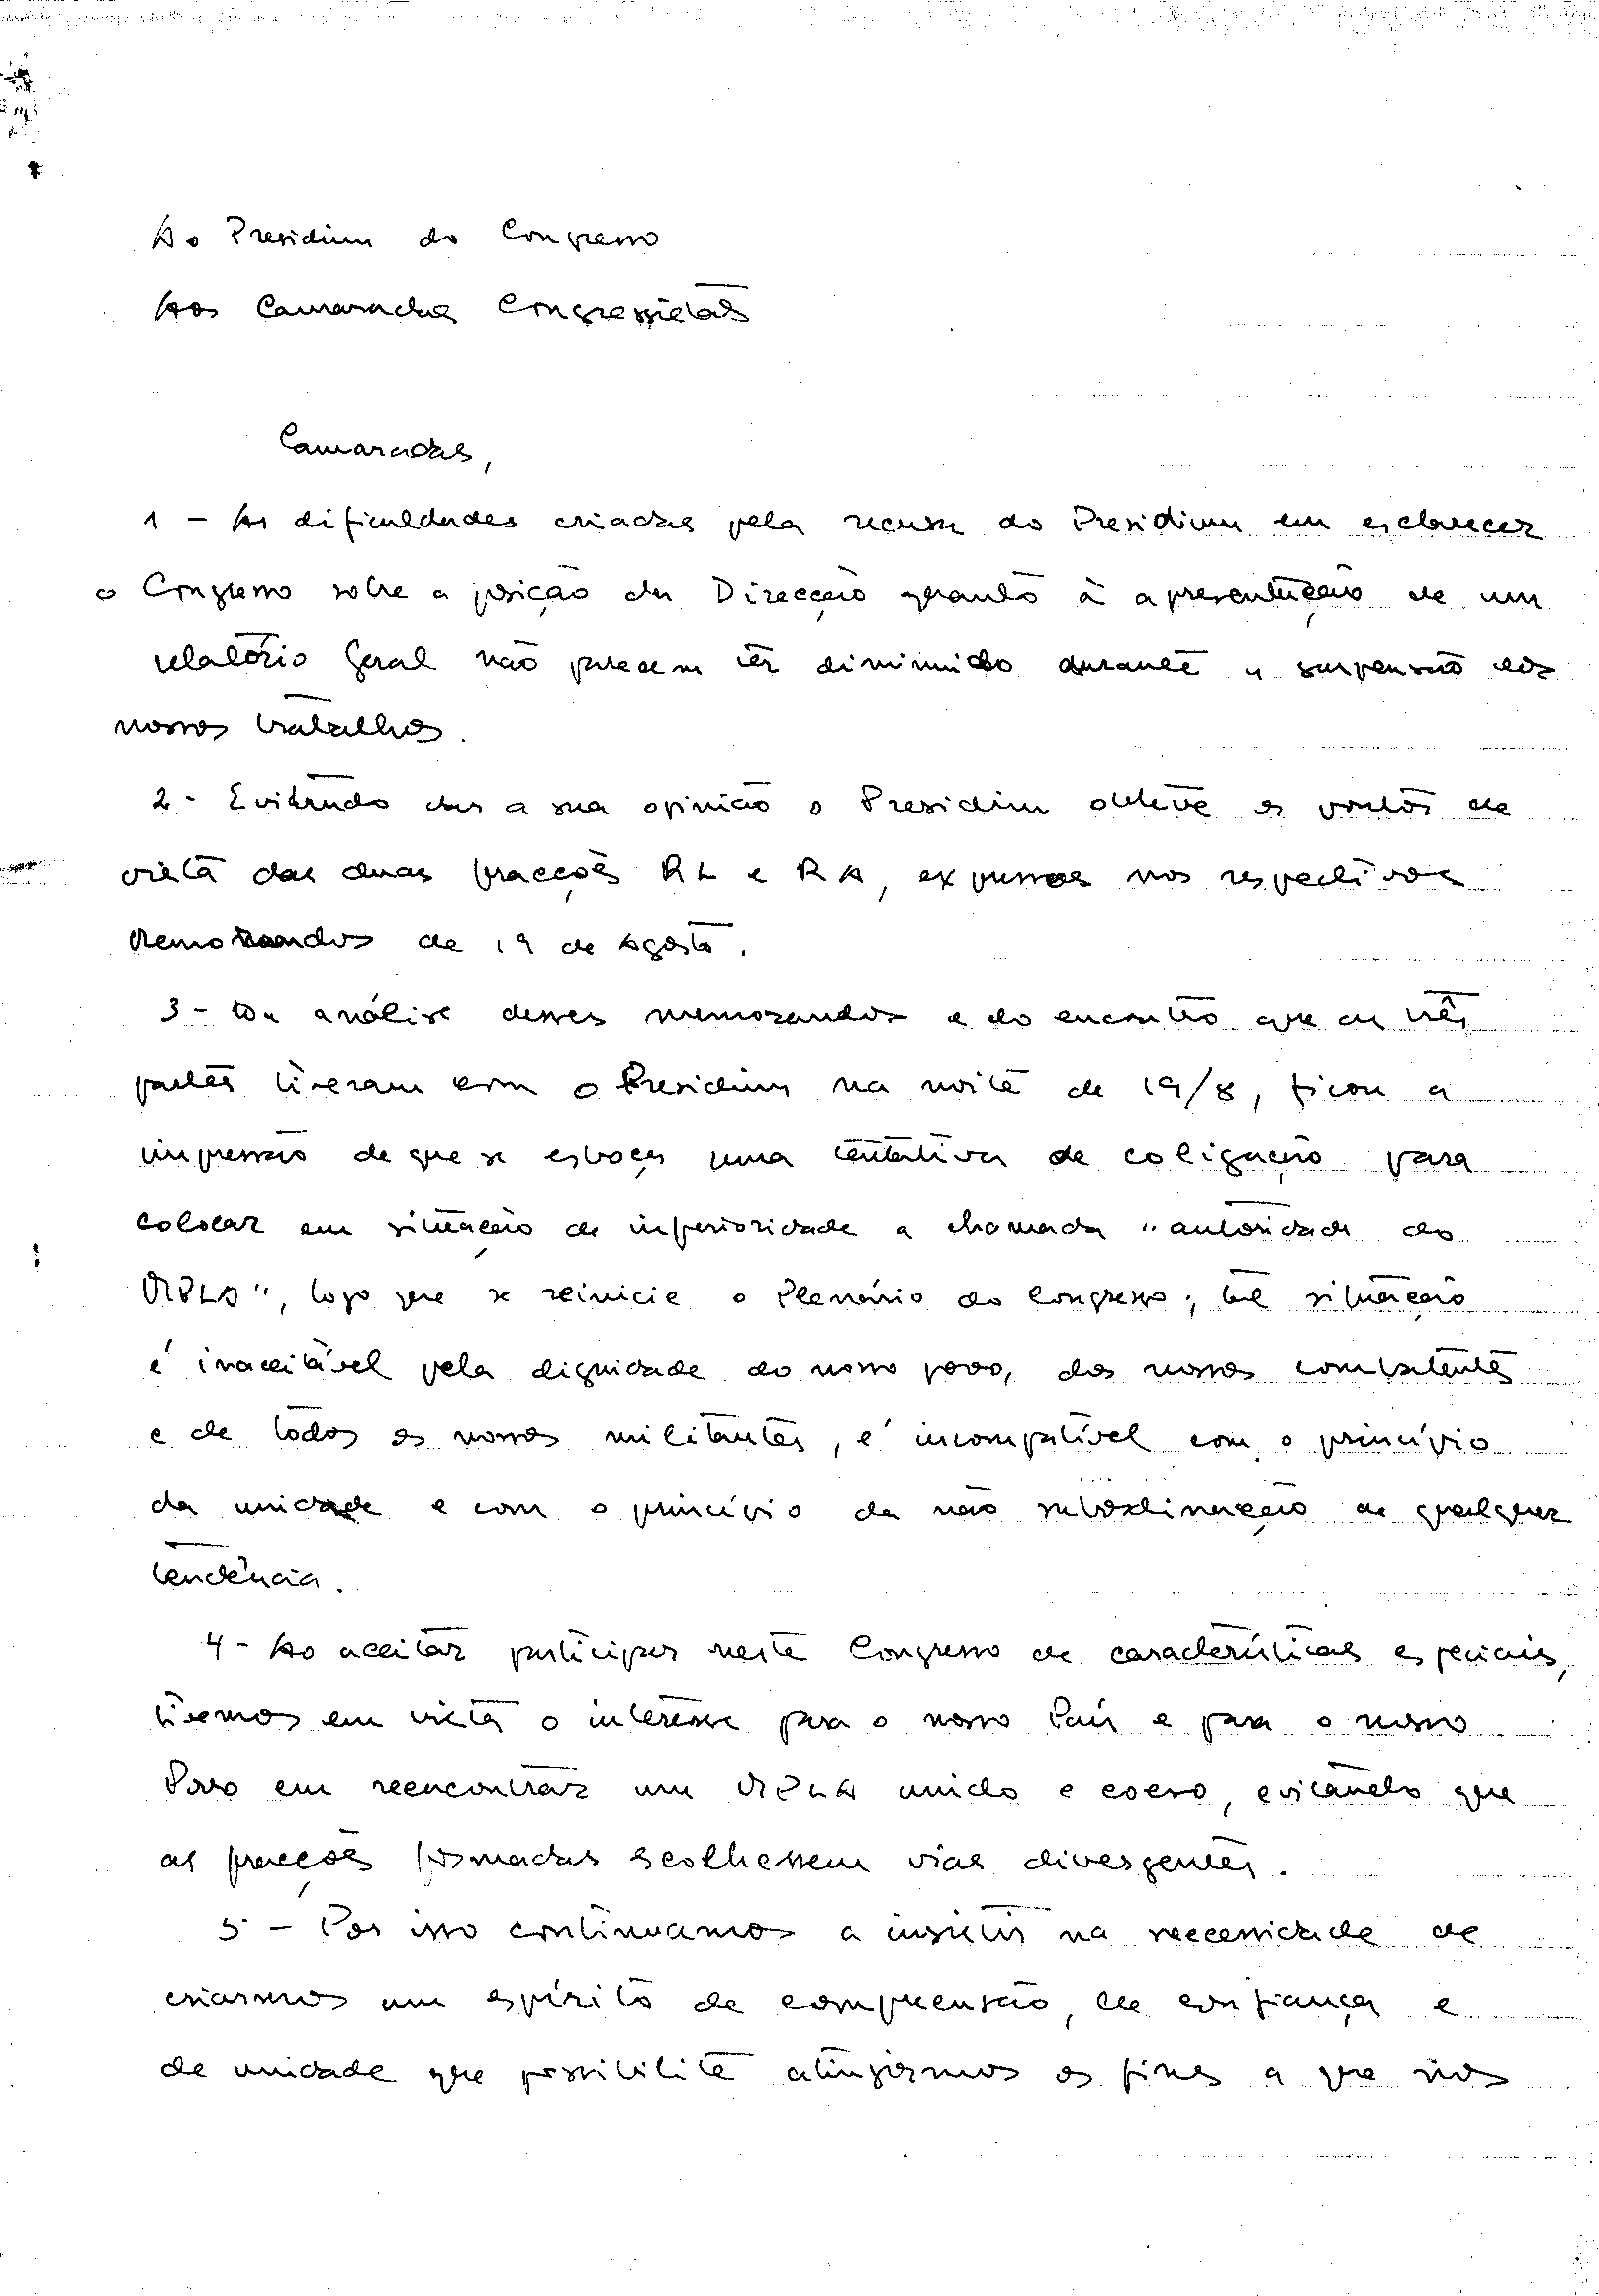 Ao Presidium do Congresso
Aos Camaradas Congressistas
Camaradas,
1 - As dificuldades criadas pela recusa do Presidium em esclarecer
o Congresso sobre a posição da Direcção quanto à apresentação de um
relatório Geral não parecem ter diminuido durante a suspensão dos
nossos trabalhos.
2 - Evitando dar a sua opinião o Presidium obteve os pontos de
vista das duas fracções RL e RA, expressos nos respectivos
Memorandos de 19 de Agosto.
3 - Da análise desses memorandos e do encontro que as três
partes tiveram com o Presidium na noite de 19/8, ficou a
impressão de que se esboça uma tentativa de coligação para
colocar em situação de inferioridade a chamada "autoridade do
MPLA", logo que se reinicie o Plenário do Congresso; tal situação
é inaceitável pela dignidade do nosso povo, dos nossos combatentes
e de todos os nossos militantes, é incompatível com o princípio
da unidade e com o princípio da não subordinação a qualquer
tendência.
4 - Ao aceitar participar neste Congresso de características especiais,
tivemos em vista o interesse para o nosso País e para o nosso
Povo em reencontrar um MPLA unido e coeso, evitando que
as fracções formadas escolhessem vias divergentes.
5 - Por isso continuamos a insistir na necessidade de
criarmos um espírito de compreensão, de confiança e
de unidade que possibilite atingirmos os fins a que nos